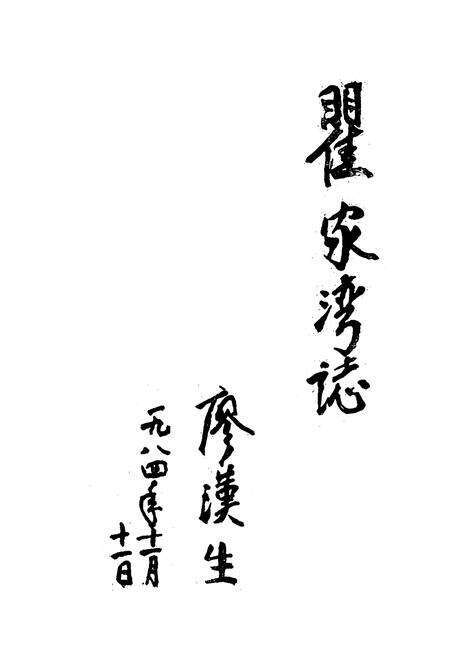 瞿家湾誌
廖漢生
一九八四年十一月
十一日